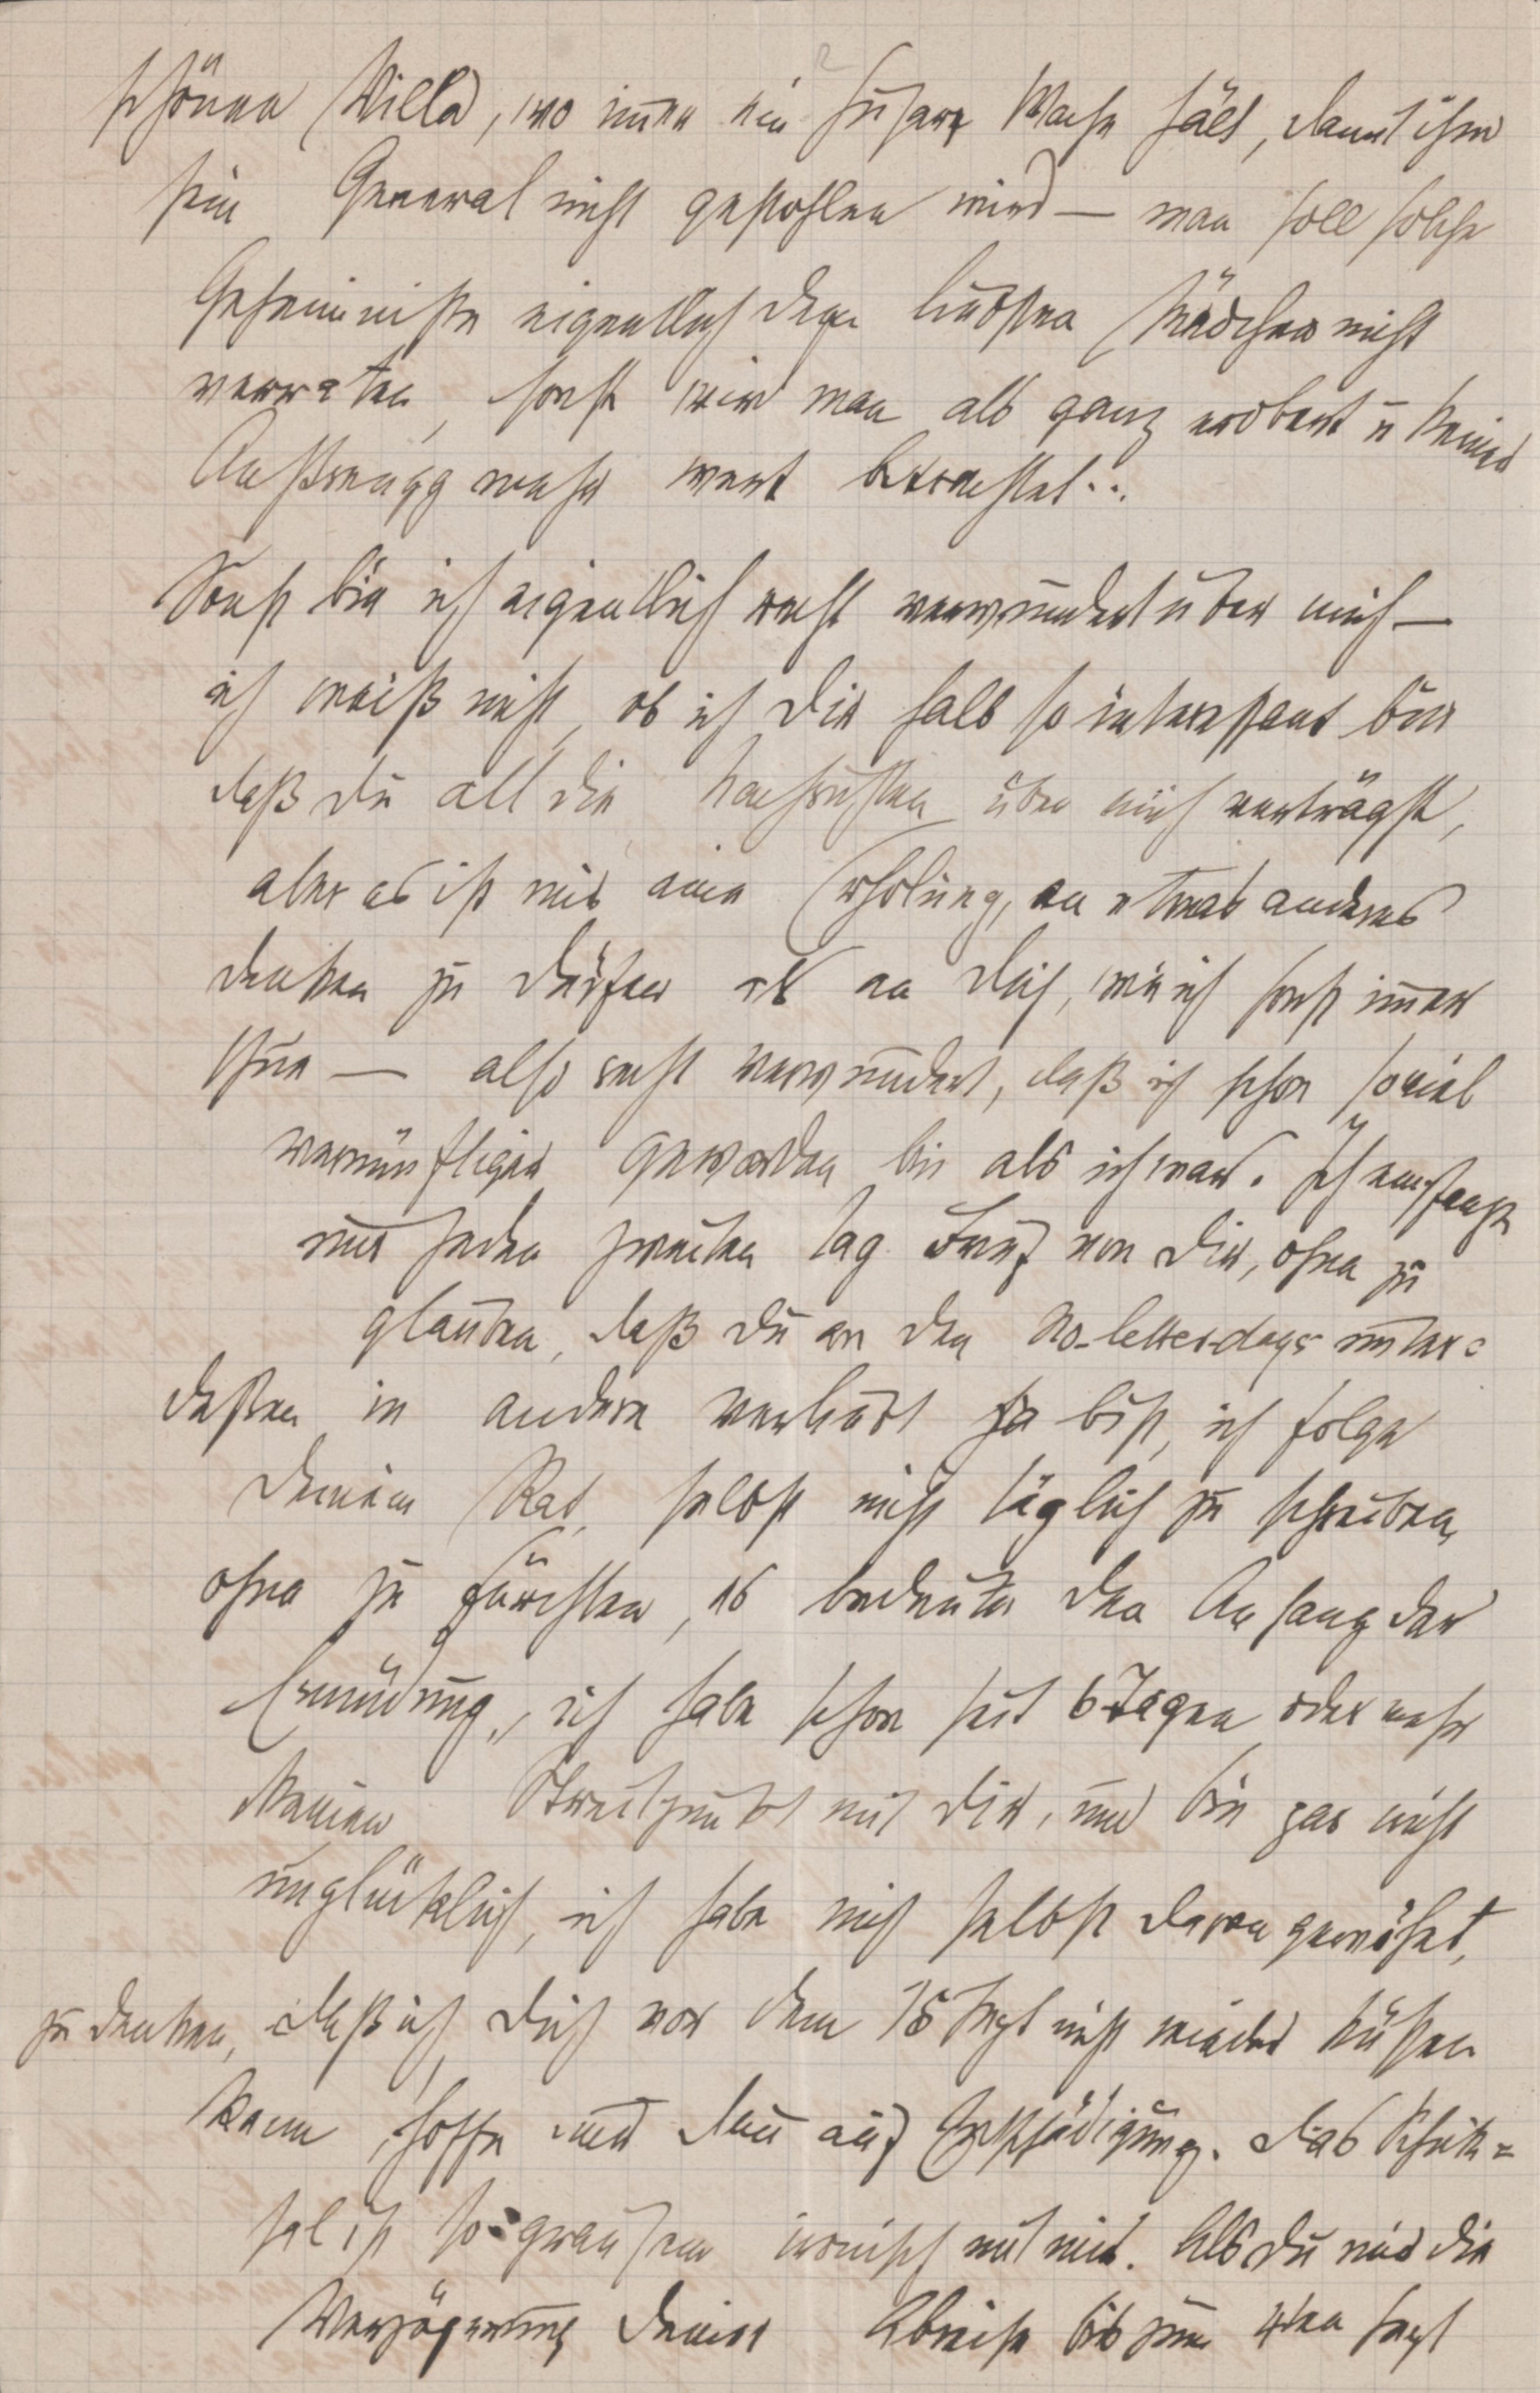 schönen Villa, wo im̄er ein Husar Wache hält, damit ihm
sein General nicht gestohlen wird — man soll solche
Geheimniße eigentlich dem liebsten Mädchen nicht
verraten, sonst wird man als ganz erobert u keiner
Anstrengg mehr wert betrachtet..
Sonst bin ich eigentlich recht verwundert über mich —
ich weiß nicht, ob ich Dir halb so interessant bin
daß Du all die Nachrichten über mich verträgst,
aber es ist mir eine Erholung, an etwas anderes
denken zu dürfen als an Dich, wie ich sonst im̄er
thue — also recht verwundert, daß ich schon soviel
vernünftiger geworden bin als ich war. Ich empfange
nur jeden zweiten Tag Brief von Dir, ohne zu
glauben, daß Du an den No-letter-days unter=
deßen in andere verliebt bist, ich folge
Deinem Rat, selbst nicht täglich zu schreiben,
ohne zu fürchten, es bedeute den Anfang der
Ermüdung, ich habe schon seit 6 Tagen oder mehr
keinen Streitpunkt mit Dir, und bin gar nicht
unglücklich, ich habe mich selbst daran gewöhnt,
zu denken, daß ich Dich vor dem 15 Sept nicht wieder küßen
kann, hoffe und bau auf Entschädigung. Das Schick=
sal ist so grausam ironisch mit mir. Als Du mir die
Verzögerung Deiner Abreise bis zum 4ten Sept